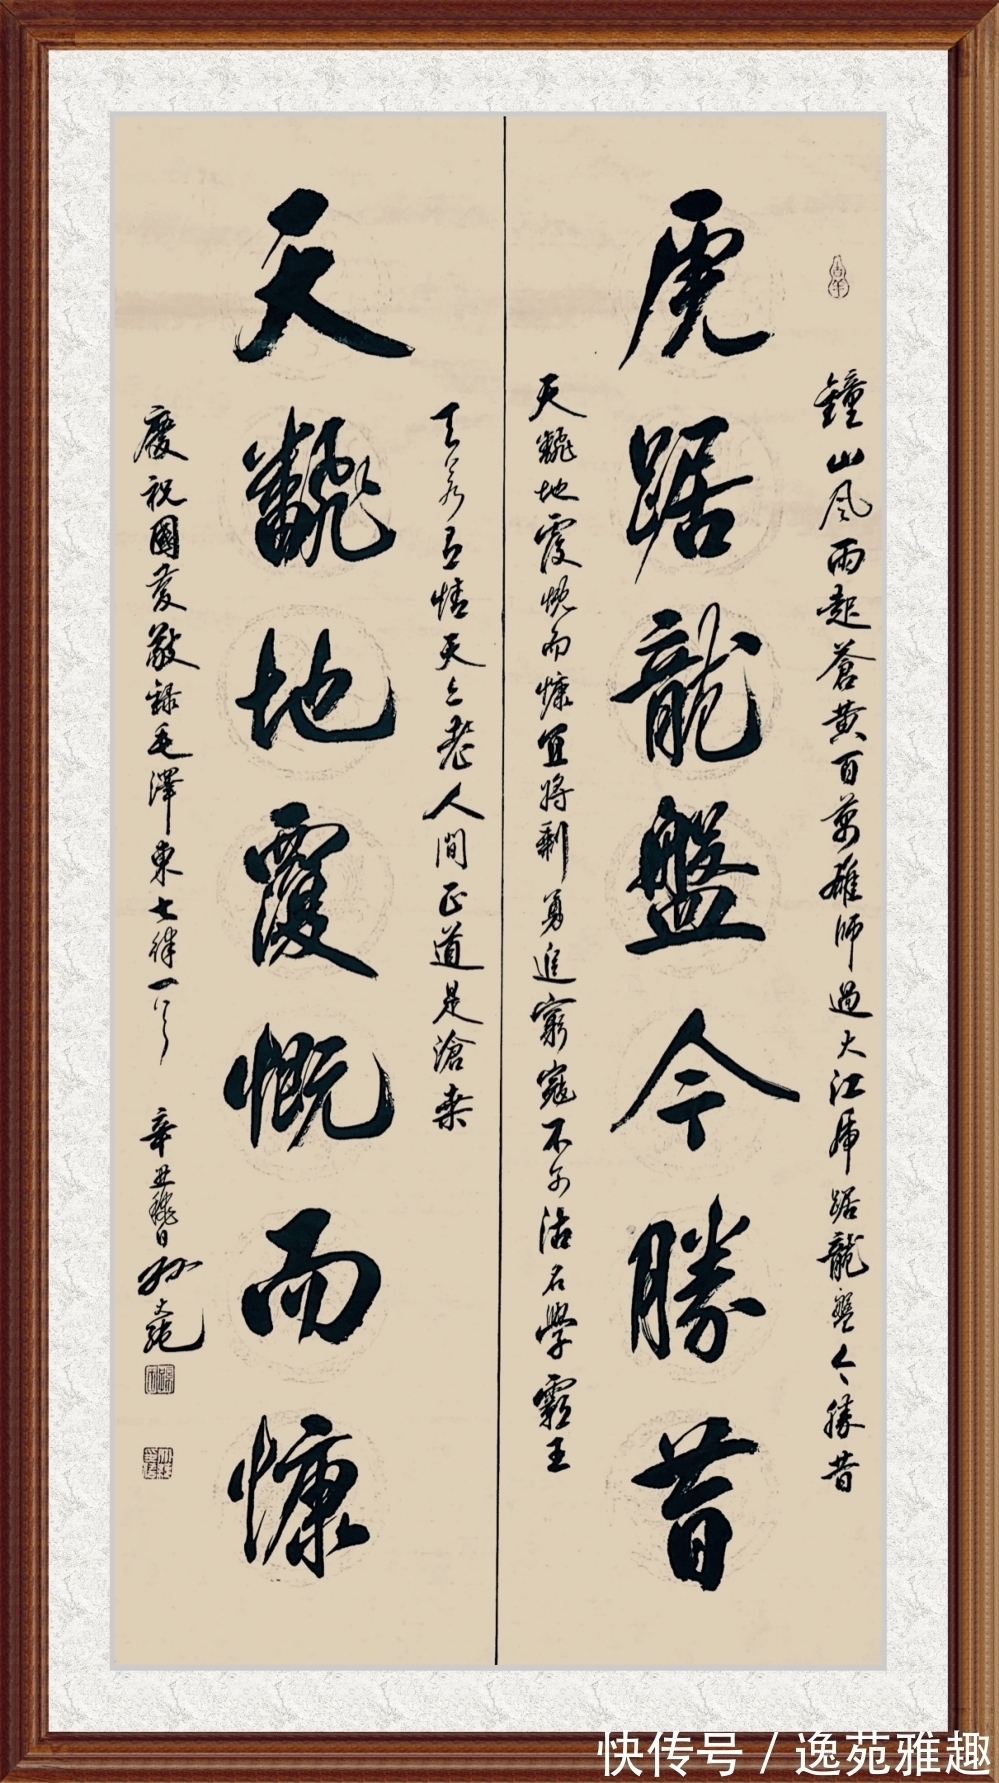 鐘山風雨起蒼黄百萬雄師過大江虎踞龍盤今勝昔
虎踞龍盤今勝昔
天飜地覆慨而慷宜將剩勇追窮寇不可沽名學霸王
天若有情天亦老人間正道是滄桑
天飜地覆慨而慷
慶祝國慶敬錄毛澤東七律一首
辛丑秋日孫
快传号 / 逸苑雅趣